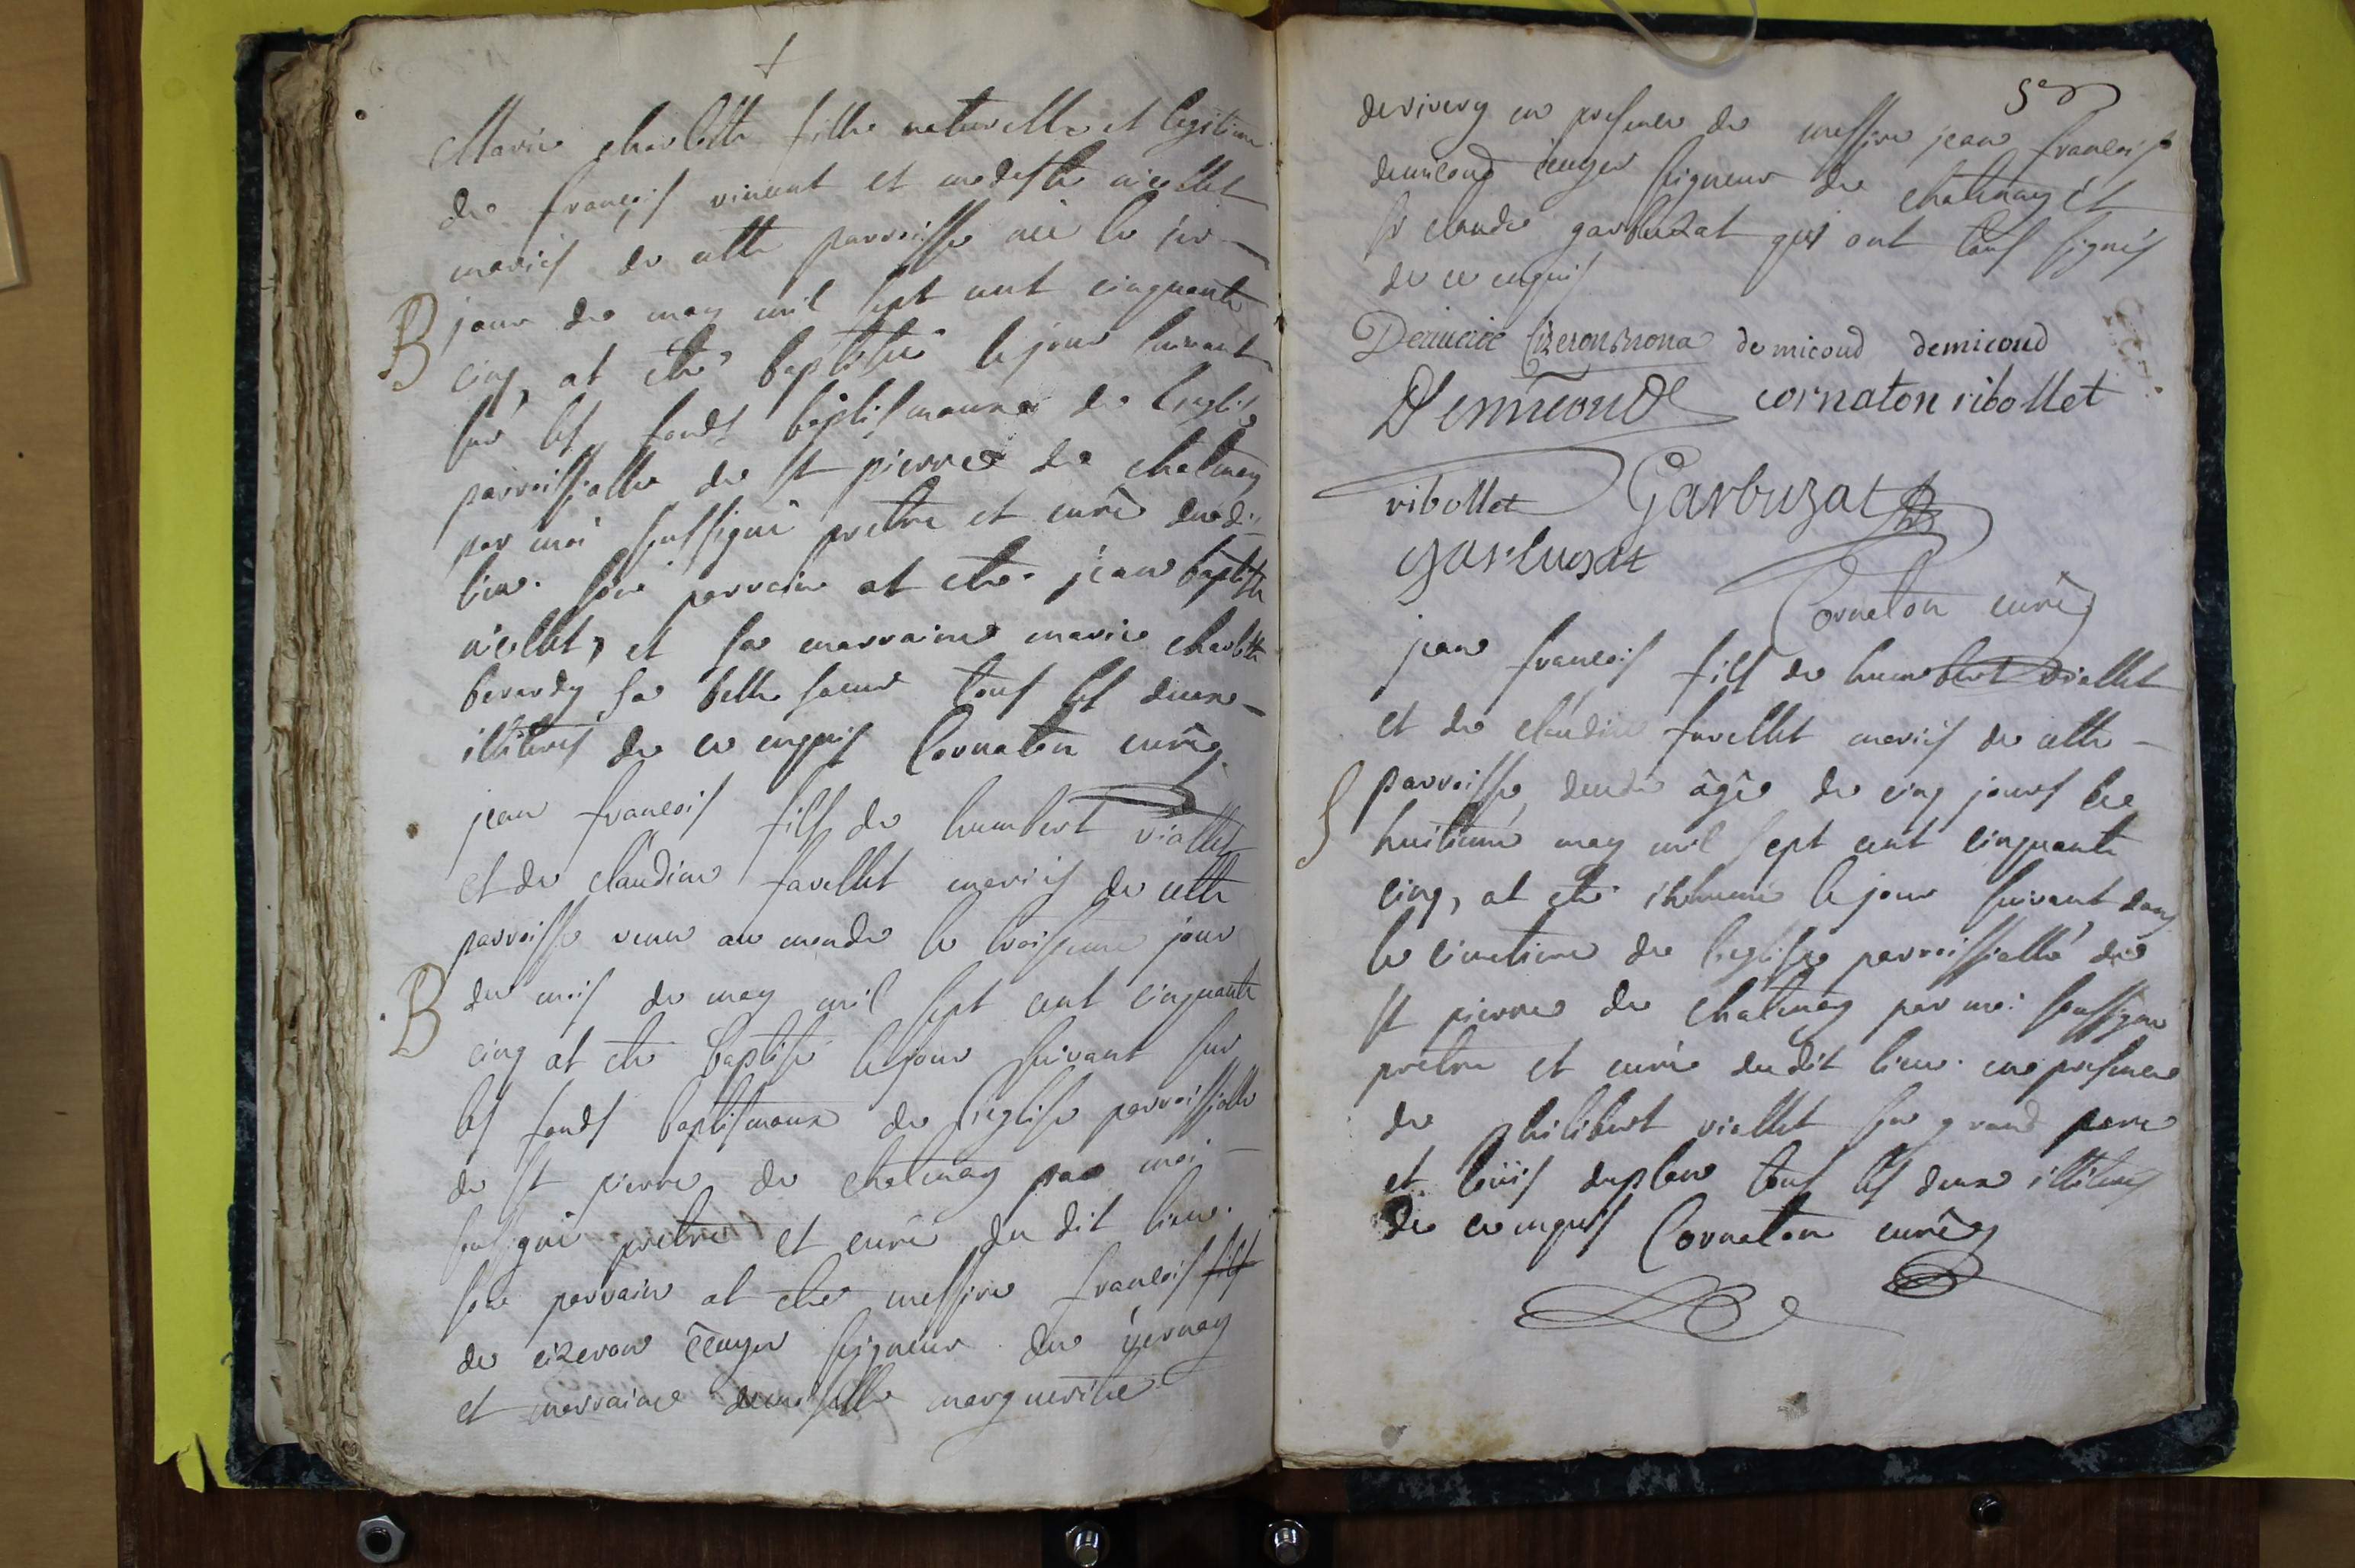 Marie charlotte fille naturelle et legitime
de francois vincent et modeste niollet
mariés de cette parroisse née le 1er
B jour de may mil sept cent cinquante
cinq, at eté baptisée le jour suivant
sur les fonds baptismaux de l'eglise
parroissialle de st pierre de chatenay
par moi soussigné pretre et curé dudit
lieu. son parrain at eté jean baptiste
niollet, et sa marraine marie charlotte
berardy sa belle soeur tous les deux
illiterés de ce enquis Cornaton curé
jean francois fils de humbert viallet
et de claudine favellet mariés de cette
parroisse venu au monde le troisieme jour
B du mois de may mil sept cent cinquante
cinq at eté baptisé le jour suivant sur
les fonds baptismaux de l'eglise parroissialle
de st pierre de chatenay par moi
soussigné pretre et curé du dit lieu.
son parrain at eté messire francois fils
de cizeron ecuyer seigneur du
et marraine demoiselle marguerite
5
en presence de messire jean francois
demicoud ecuyer seigneur de chatenay et
sr claude garbuzat qui ont tous signés
de ce enquis
demicoud demicoud
Demicoud cornaton ribollet
ribollet Garbuzat
garbuzat
Cornaton curé
jean francois fils de humbert viallet
et de claudine favellet mariés de cette
parroisse, agé de cinq jours le
S huitieme may mil sept cent cinquante
cinq, at eté inhumé le jour suivant dans
le cimetiere de l'eglise parroissialle de
st pierre de chatenay par moi soussigné
pretre et curé dudit lieu. en presence
de philibert viallet son grand pere
et loüis tous les deux illiterés
de ce enquis Cornaton curé